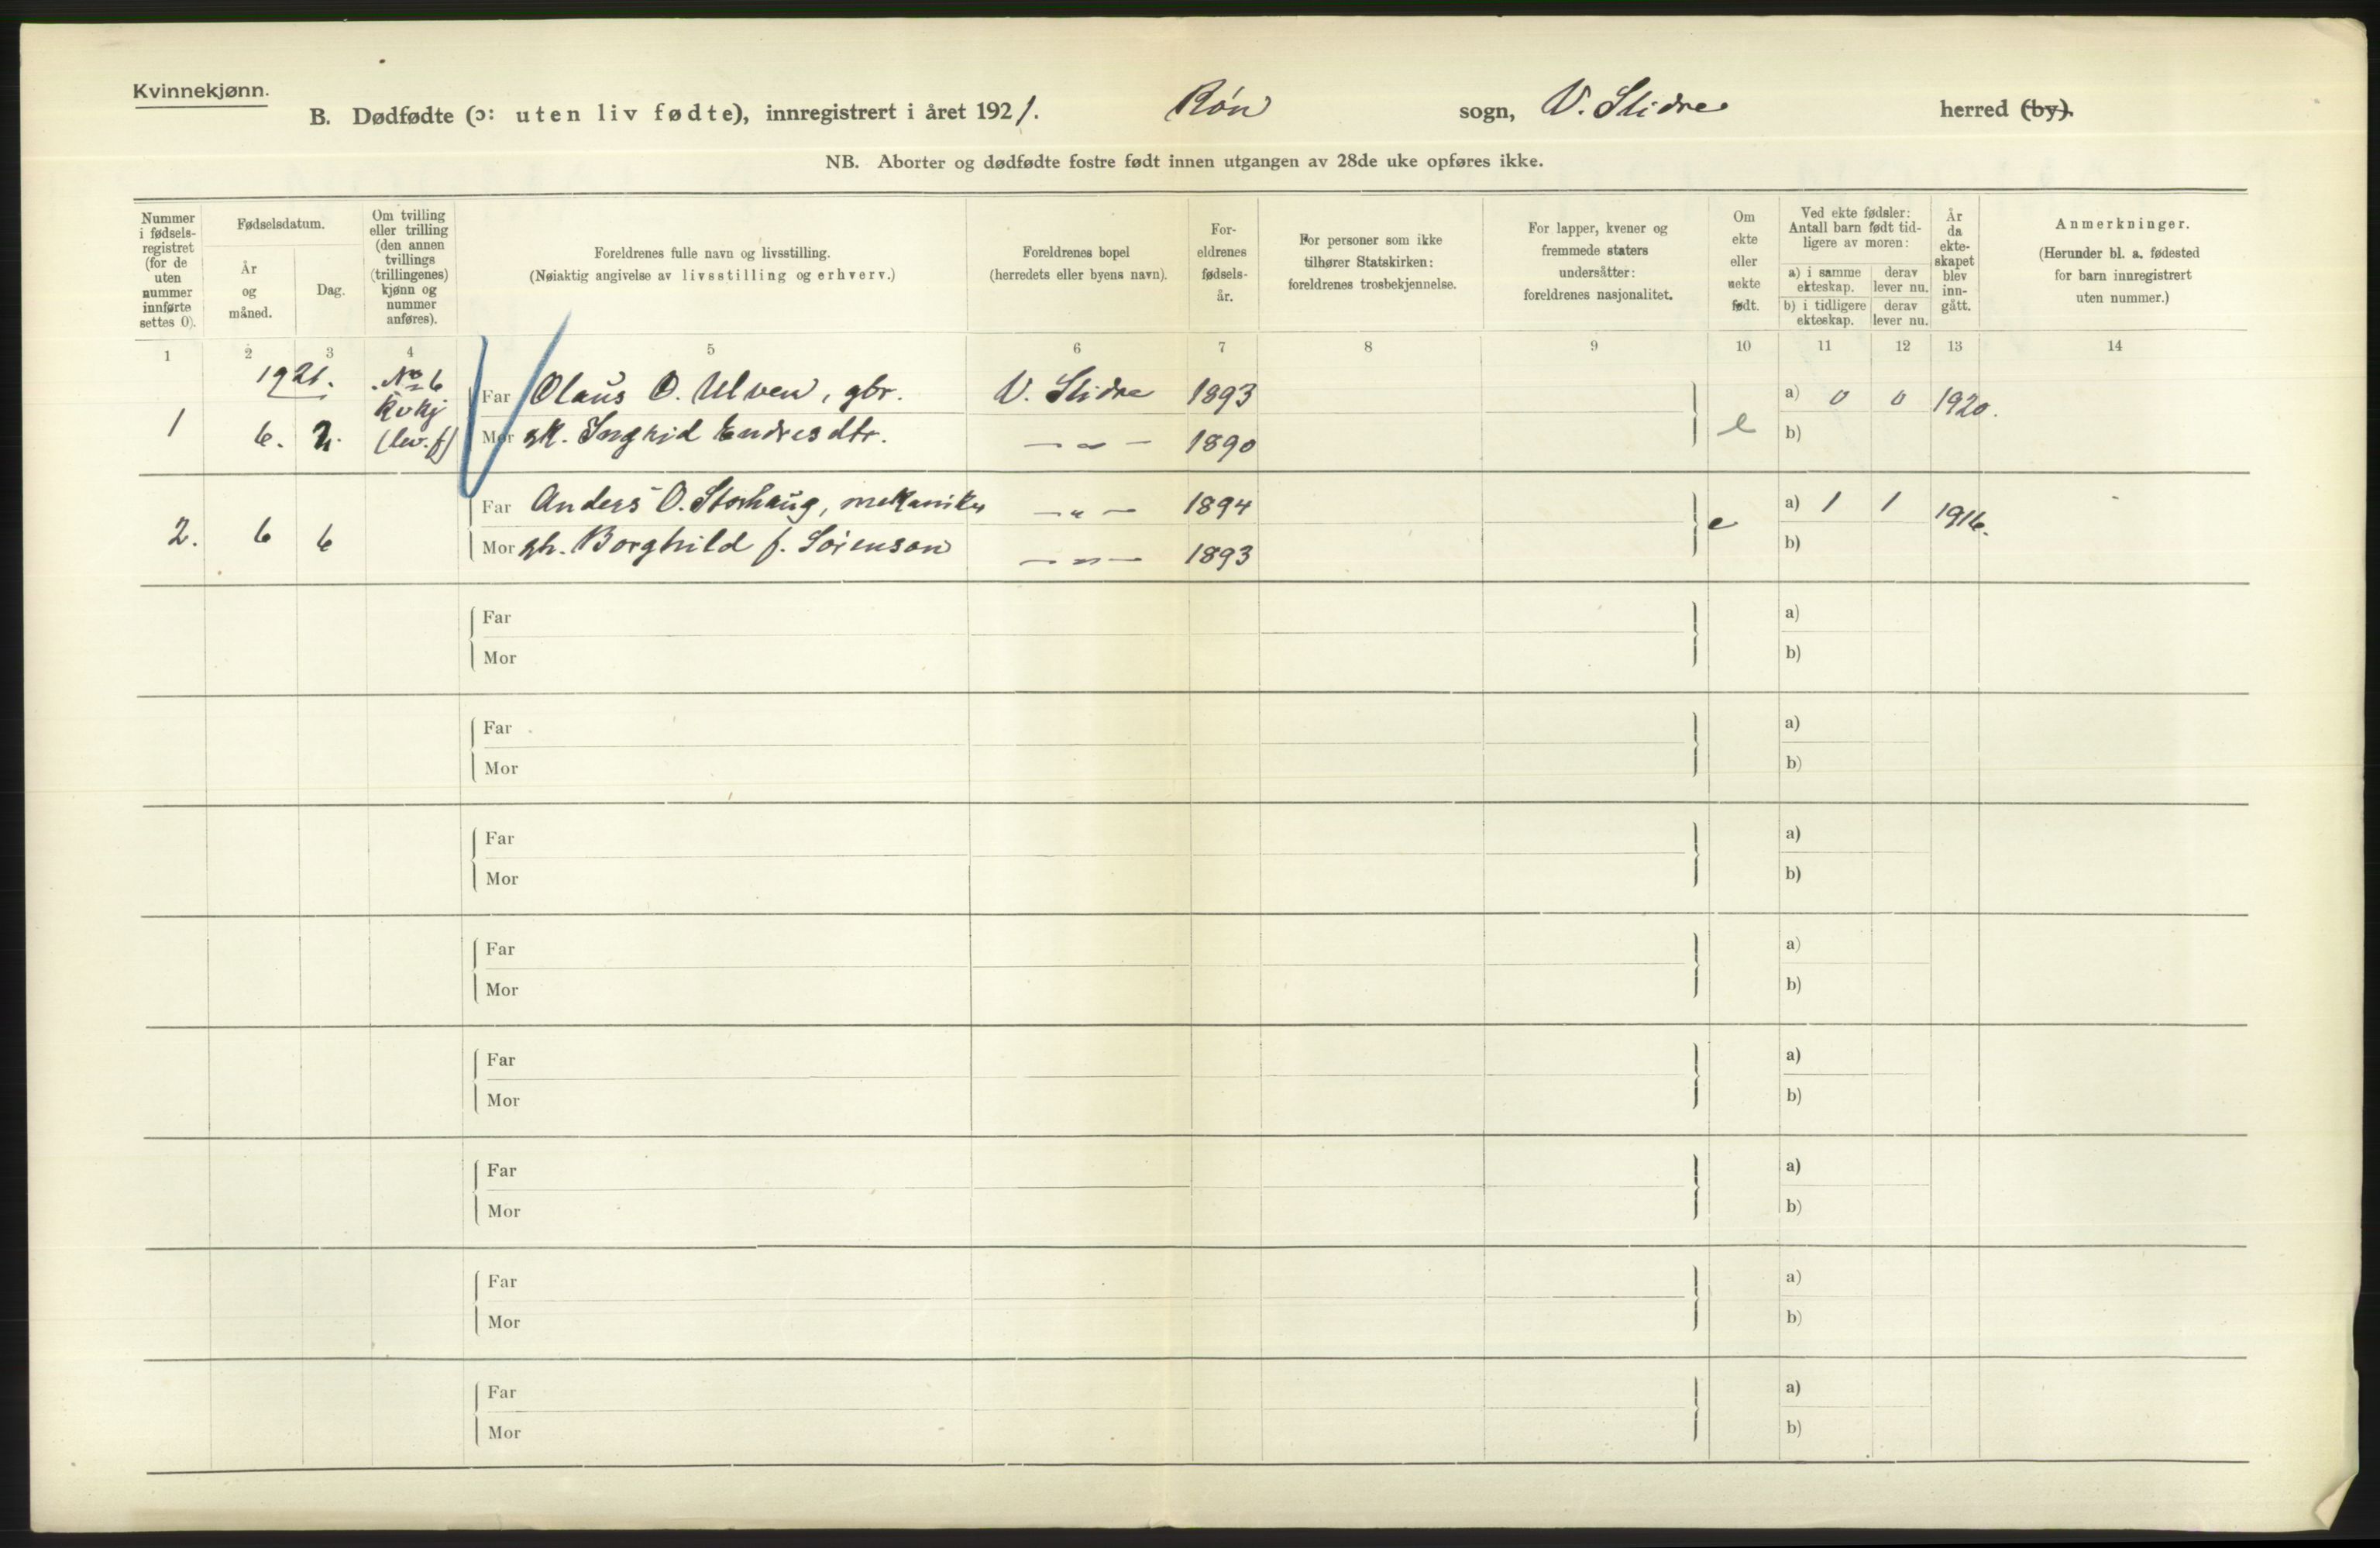 Kvinnekjønn.
B. Dødfødte (ɔ: uten liv fødte), innregistrert i året 1921. Røn sogn, V. Slidre herred (by).
NB. Aborter og dødfødte fostre født innen utgangen av 28de uke opføres ikke.
Nummer i fødsels-registret (for de uten nummer innførte settes 0).
Fødselsdatum.
År og måned.
Dag.
Om tvilling eller trilling (den annen tvillings (trillingenes) kjønn og nummer anføres).
Foreldrenes fulle navn og livsstilling.
(Nøiaktig angivelse av livsstilling og erhverv.)
Foreldrenes bopel
(herredets eller byens navn).
For-eldrenes fødsels-år.
For personer som ikke
tilhører Statskirken:
foreldrenes trosbekjennelse.
For lapper, kvener og
fremmede staters
undersåtter:
foreldrenes nasjonalitet.
Om ekte eller uekte født.
Ved ekte fødsler:
Antall barn født tid-
ligere av moren:
a) i samme ekteskap. derav lever nu.
b) i tidligere ekteskap. derav lever nu.
År da ekte-skapet blev inn-gått.
Anmerkninger.
(Herunder bl. a. fødested
for barn innregistrert
uten nummer.)
1 2 3 4 5 6 7 8 9 10 11 12 13 14
1921. No 6
Kv kj
(lev. f)
1 6. 2.
Far Olaus O. Ulven, gbr. V. Slidre 1893 a) 0 0 1920.
Mor gk. Ingrid Endresdtr. — " — 1890 e b)
2. 6 6
Far Anders O. Storhaug, mekaniker — " — 1894 e a) 1 1 1916.
Mor gh. Borghild f. Sørenson — " — 1893 b)
Far a)
Mor b)
Far a)
Mor b)
Far a)
Mor b)
Far a)
Mor b)
Far a)
Mor b)
Far a)
Mor b)
Far a)
Mor b)
Far a)
Mor b)